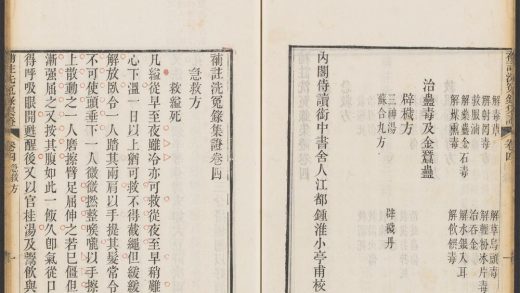 解草烏頭毒
解輕粉冰片毒
治吞金
解藥蠱金石毒
解水銀入耳
解飲饌毒
治蠱毒及金蠶蠱
辟穢方
三神湯
辟穢丹
蘇合九方
內閣侍讀銜中書舍人江都鍾淮小亭甫校
補註洗冤錄集證卷四
急救方
救縊死
凡縊從早至夜雖冷亦可救從夜至早稍難
心下溫一日以上猶可救不得截繩但緩緩
解放臥令一人踏其兩肩以手提其髮常令
不可使頭垂下一人微微撚整喉嚨以手擦
上散動之一人磨擦臂足屈伸之若已僵但
漸强屈之又按其腹如此一飯久卽氣從口
得呼吸眼開甦醒後又以官桂湯及粥飲與
補註洗冤錄集證
卷四
急救方